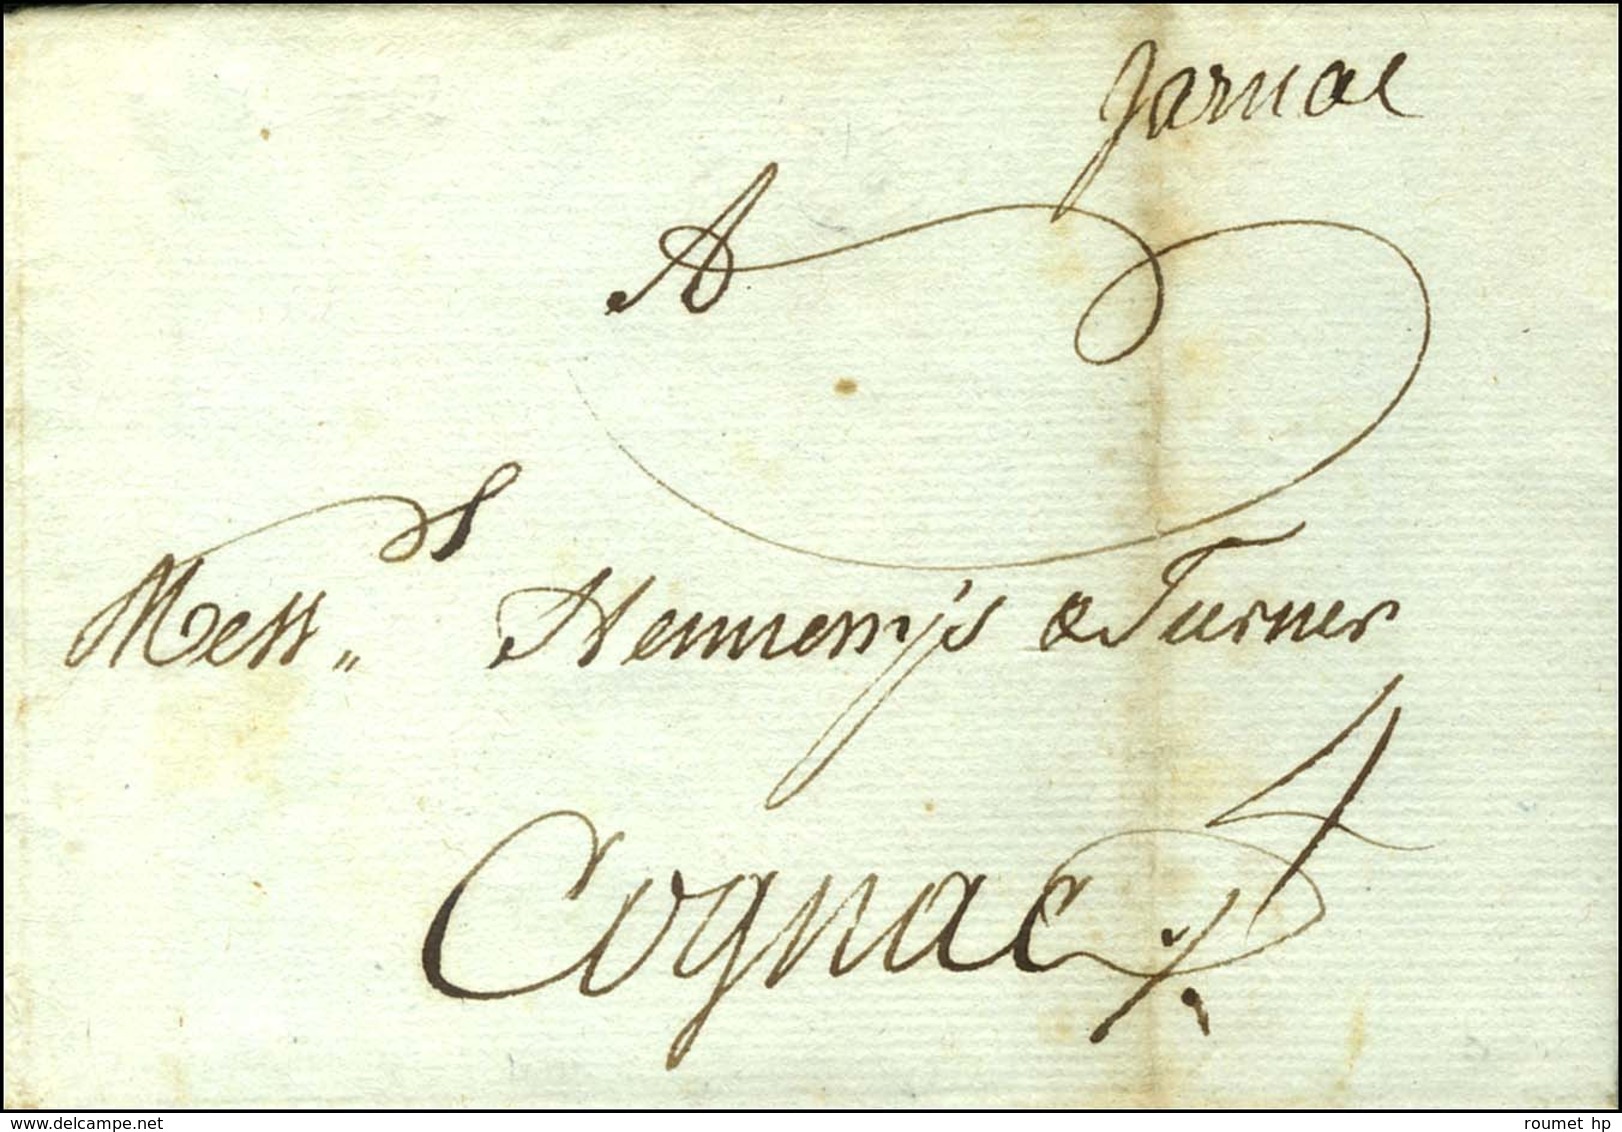 Jarnac
A
Mess.rs Hennessy's & Turner
4
Cognac
delcampe.net
roumet hp